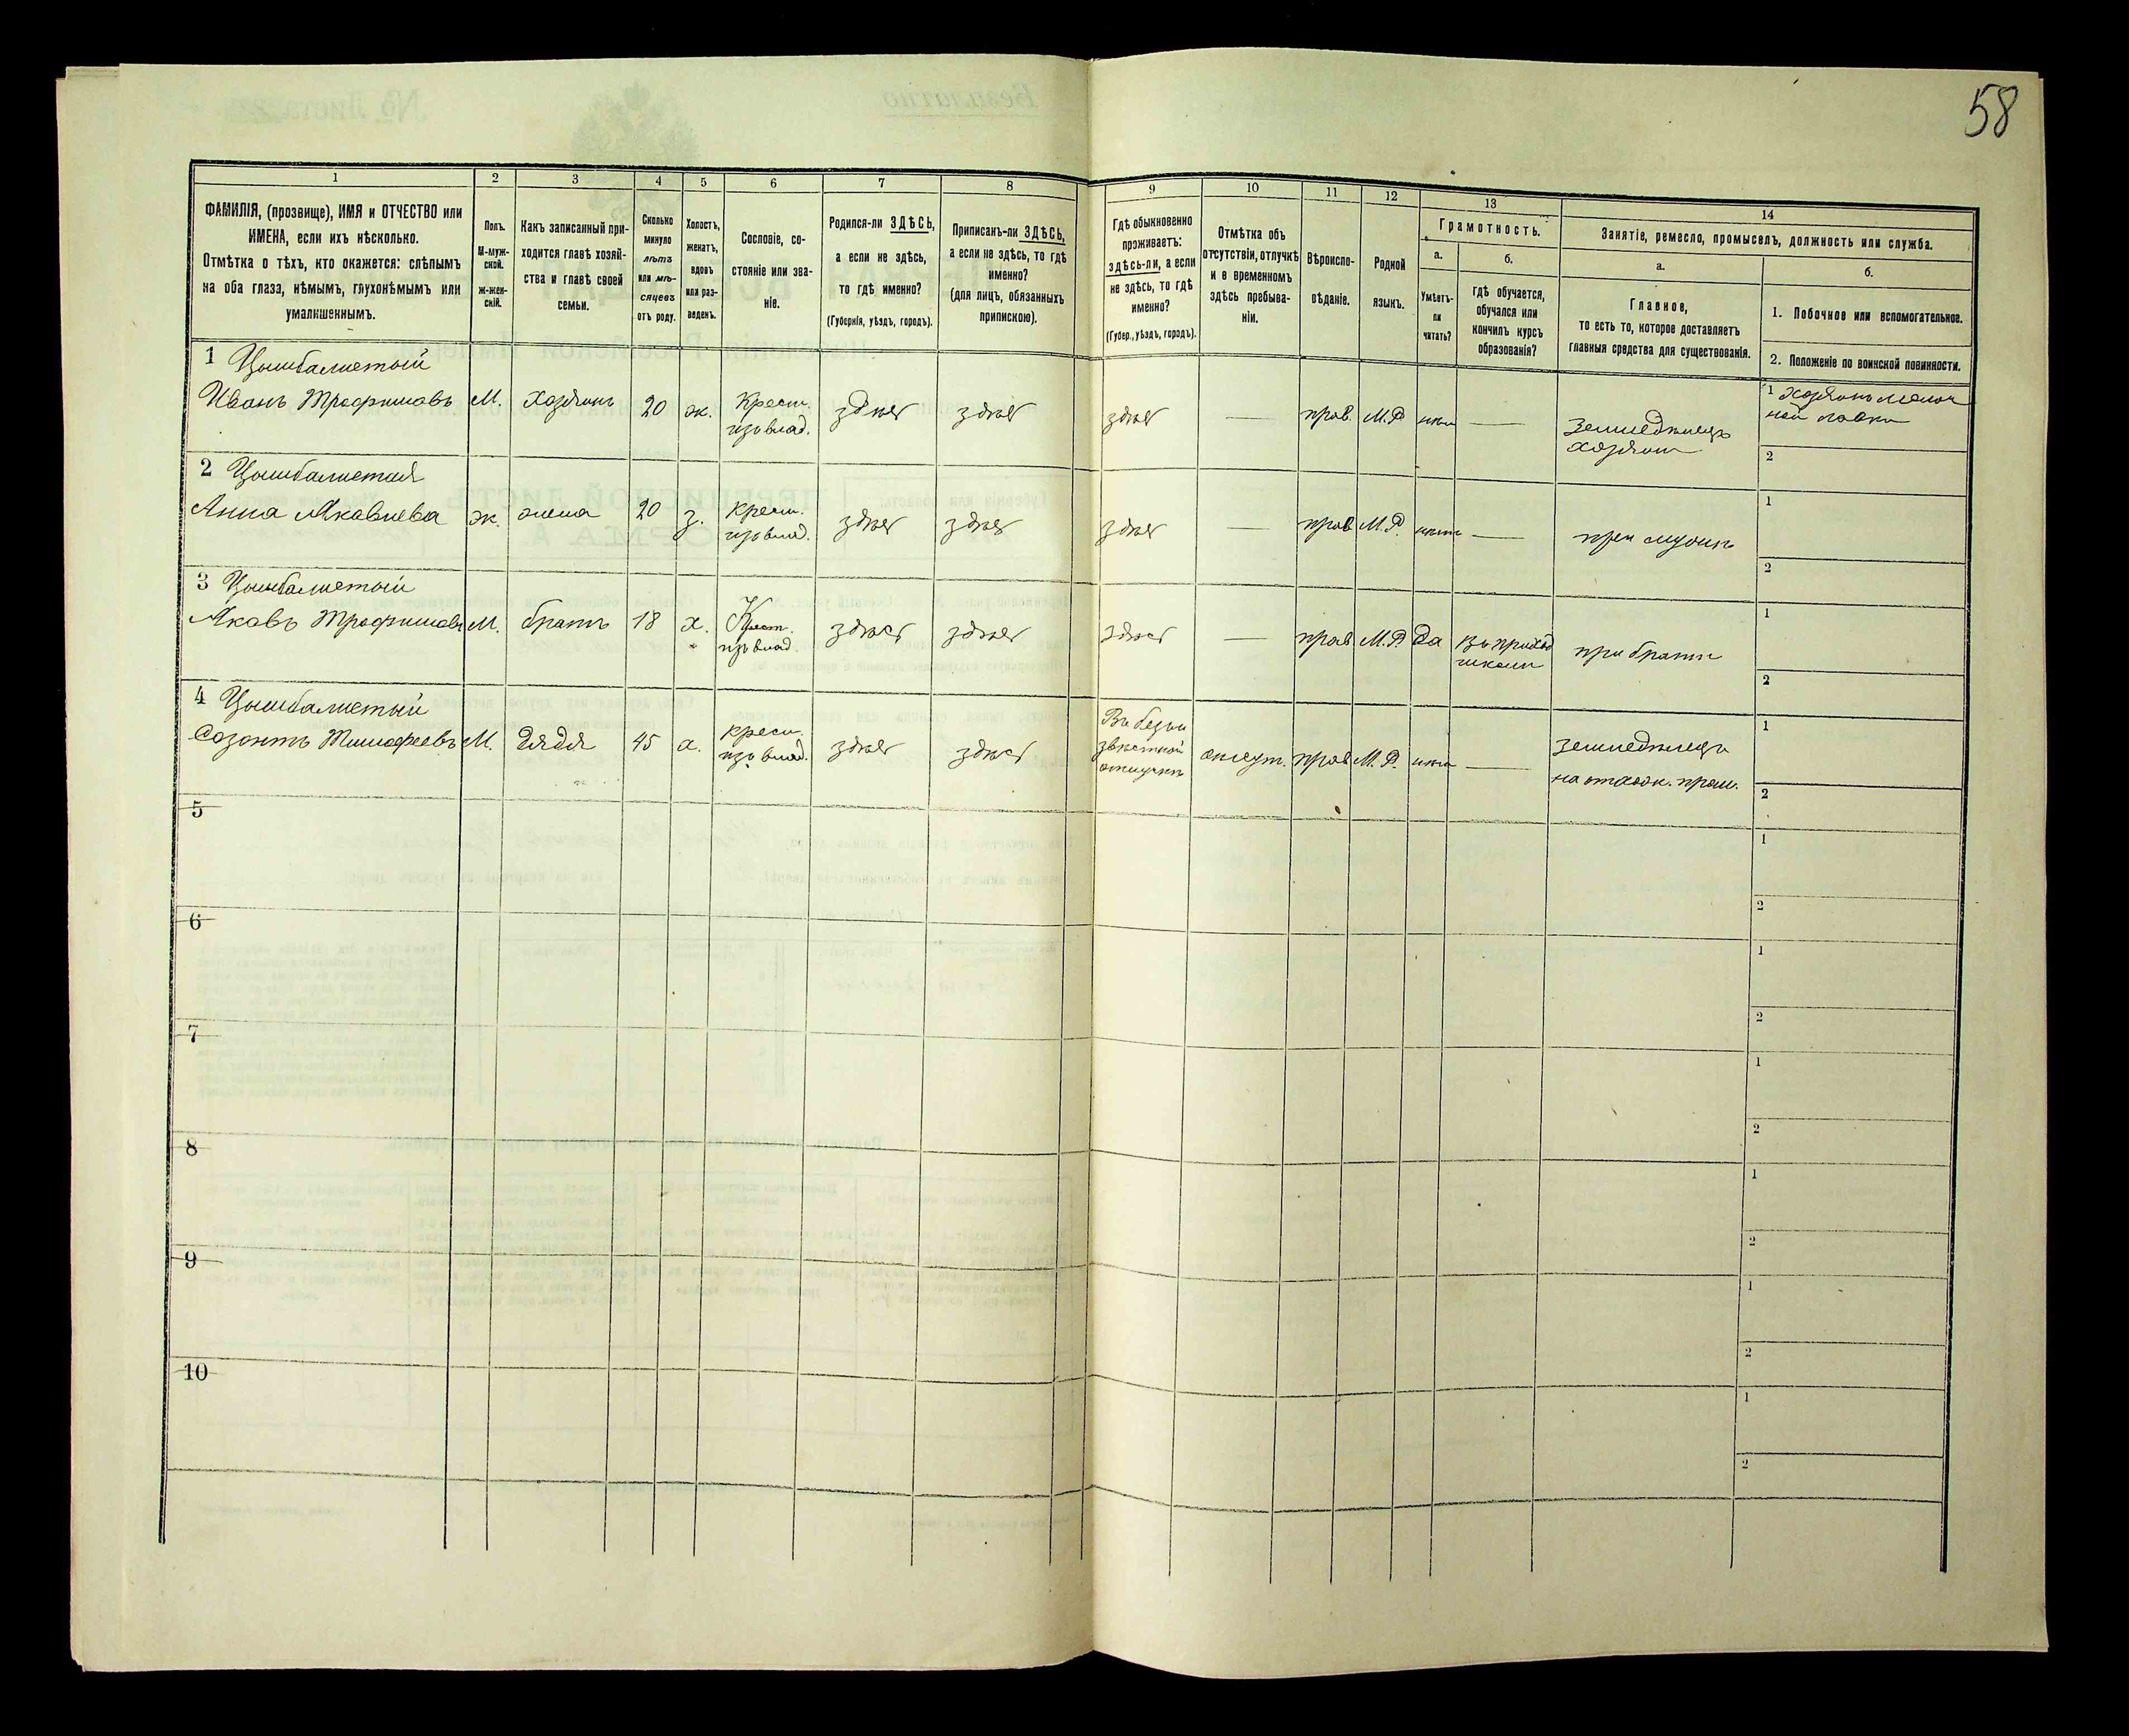 58
1
2
3
4
5
6
7
8
9
10
11
12
13
14
ФАМИЛІЯ, (прозвище), ИМЯ и ОТЧЕСТВО или
ИМЕНА, если ихъ нѣсколько.
Отмѣтка о тѣхъ, кто окажется: слѣпымъ
на оба глаза, нѣмымъ, глухонѣмымъ или
умалишеннымъ.
Полъ.
М-муж-
ской.
Ж-жен-
скій.
Какъ записанный при-
ходится главѣ хозяй-
ства и главѣ своей
семьи.
Сколько
минуло
лѣтъ
или мѣ-
сяцевъ
отъ роду.
Холостъ,
женатъ,
вдовъ
или раз-
веденъ.
Сословіе, со-
стояніе или зва-
ніе.
Родился-ли ЗДѢСЬ,
а если не здѣсь,
то гдѣ именно?
(Губернія, уѣздъ, городъ).
Приписанъ-ли ЗДѢСЬ,
а если не здѣсь, то гдѣ
именно?
(для лицъ, обязанныхъ
припискою).
Гдѣ обыкновенно
проживаетъ:
здѣсь-ли, а если
не здѣсь, то гдѣ
именно?
(Губер., уѣздъ, городъ).
Отмѣтка объ
отсутствіи, отлучкѣ
и в временномъ
здѣсь пребыва-
ніи.
Вѣроиспо-
вѣданіе.
Родной
языкъ.
Грамотность.
а.
Умѣетъ-
ли
читать?
б.
гдѣ обучается,
обучался или
кончилъ курсъ
образованія?
Занятіе, ремесло, промыселъ, должность или служба.
а.
Главное,
то есть то, которое доставляетъ
главныя средства для существованія.
б.
1. Побочное или вспомогательное.
2. Положеніе по воинской повинности.
1 Цымбалистый
Иванъ Трофимовъ М. хозяинъ 20 ж. Крест. изъ влад. здѣсь здѣсь здѣсь — прав. М.Р. нѣтъ — Земледѣлецъ хозяинъ
1 Хозяинъ мелоч
ной лавки
2
2 Цымбалистая
Анна Яковлева ж. жена 20 з. крест. изъ влад. здѣсь здѣсь здѣсь — прав М.Р. нѣтъ — при мужѣ
1
2
3 Цымбалистый
Яковъ Трофимовъ М. братъ 18 х. Крест. изъ влад. здѣсь здѣсь здѣсь — прав М.Р. да въ приход школѣ при братѣ
1
2
4 Цымбалистый
Созонтъ Тимофеевъ М. дядя 45 х. крест. изъ влад. здѣсь здѣсь Въ безъи звѣстной отлучкѣ отсут. прав М.Р. нѣтъ — земледѣлецъ
на отхож. пром.
1
2
5
1
2
6
1
2
7
1
2
8
1
2
9
1
2
10
1
2